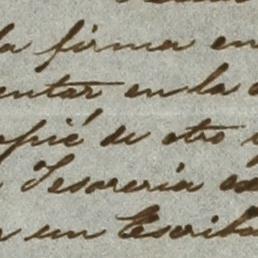 la firma en
entar en la
opié de otro
Tesoreria
un Escriba